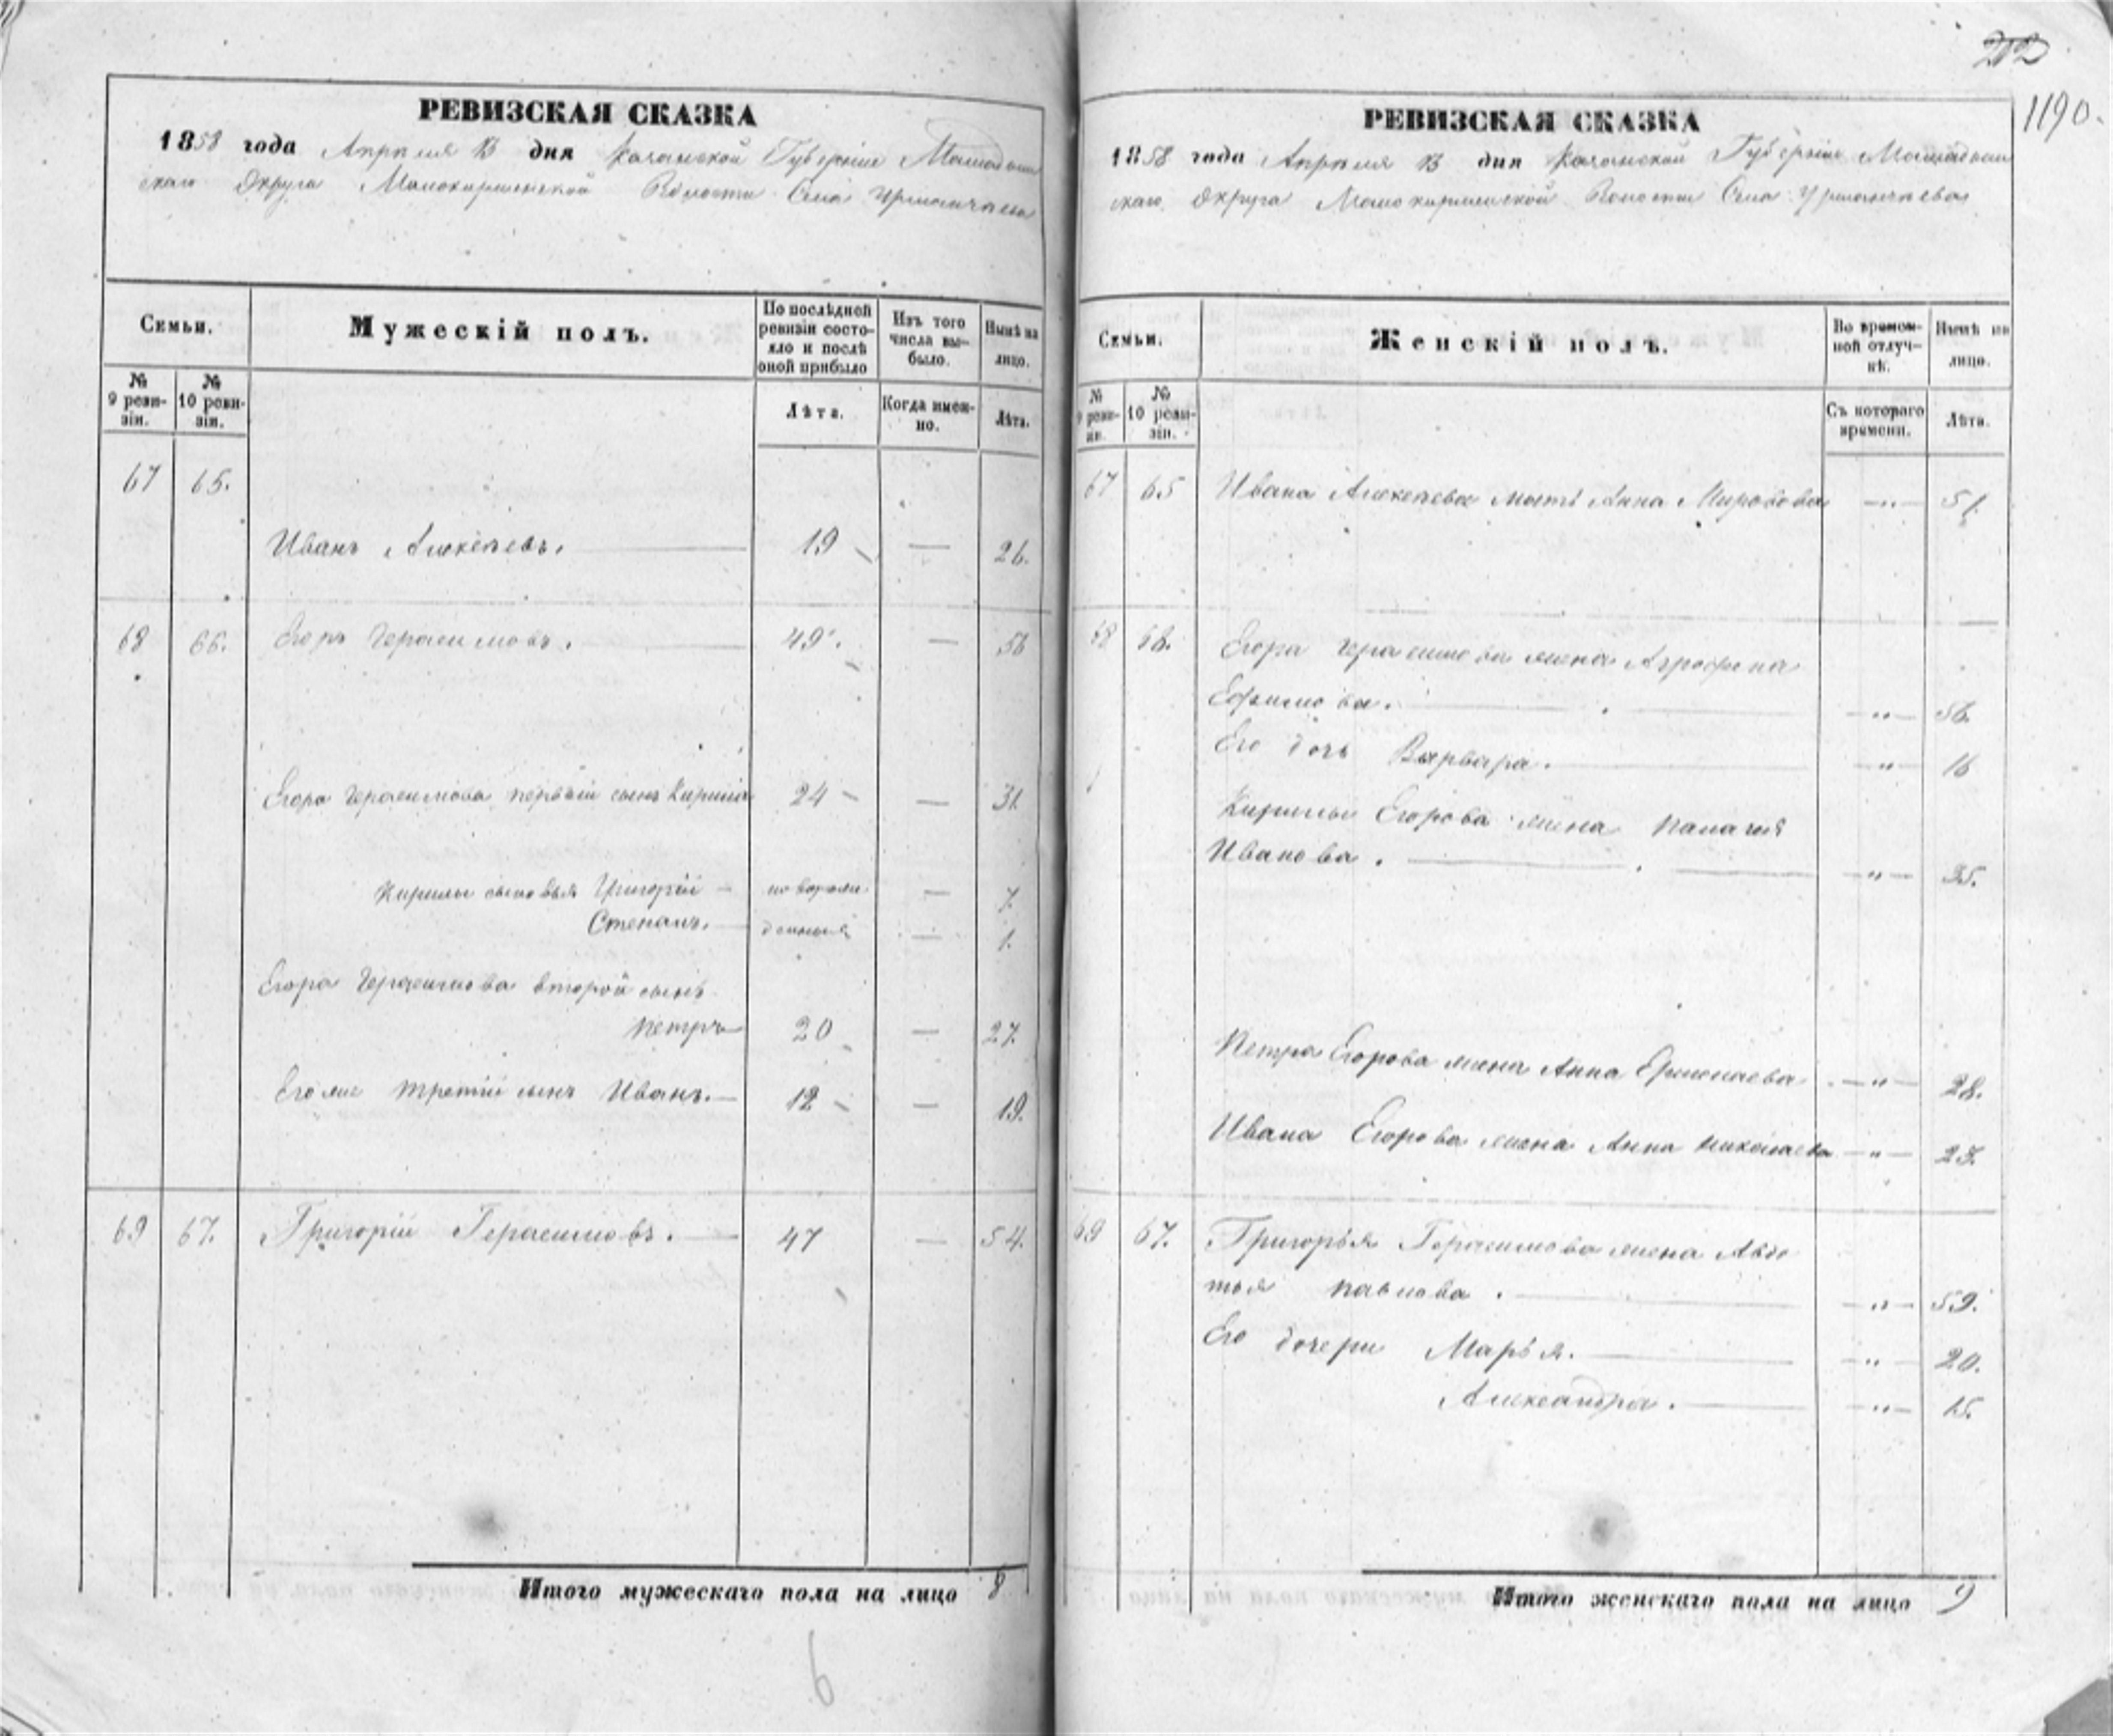 212
1190.
РЕВИЗСКАЯ СКАЗКА
1858 года Апреля 13 дня Казанской Губернии Мамадыш
скаго Округа Малокирменской Волости Села Урманчеева
Семьи.
Мужескій полъ.
По послѣдней
ревизіи состо-
яло и послѣ
оной прибыло
Изъ того
числа вы-
было.
Нынѣ на
лицо.
№
9 реви-
зіи.
№
10 реви-
зіи.
Лѣта.
Когда имен-
но.
Лѣта.
67 65.
Иванъ Алексѣевъ. 19 — 26.
68 66. Егоръ Герасимовъ. 49. — 56
Егора Герасимова первый сынъ Кирила 24 — 31.
Кирилы сыновья Григорій — новорож — 7.
Степанъ. денныя — 1.
Егора Герасимова второй сынъ
Петръ 20 — 27.
Его же третій сынъ Иванъ. 12 — 19.
69 67. Григорій Герасимовъ. 47 — 54.
Итого мужескаго пола на лицо 8
6
РЕВИЗСКАЯ СКАЗКА
1858 года Апреля 13 дня Казанской Губернии Мамадыш
скаго Округа Малокирменской Волости Села Урманчеева
Семьи.
Женскій полъ.
Во времен-
ной отлуч-
кѣ.
Нынѣ на
лицо.
№
9 реви-
зіи.
№
10 реви-
зіи.
Съ котораго
времени.
Лѣта.
67 65 Ивана Алексѣева мать Анна Миронова —"— 51.
68 66. Егора Герасимова жена Агрофена
Ефимова. —"— 56.
Его дочь Варвара. —"— 16
Кирилы Егорова жена Палагия
Иванова. —"— 35.
Петра Егорова жена Анна Ермолаева —"— 28.
Ивана Егорова жена Анна Николаева —"— 23.
69 67. Григорья Герасимова жена Авдо
тья Павлова. —"— 59.
Его дочери Марья. —"— 20.
Александра. —"— 15.
Итого женскаго пола на лицо 9